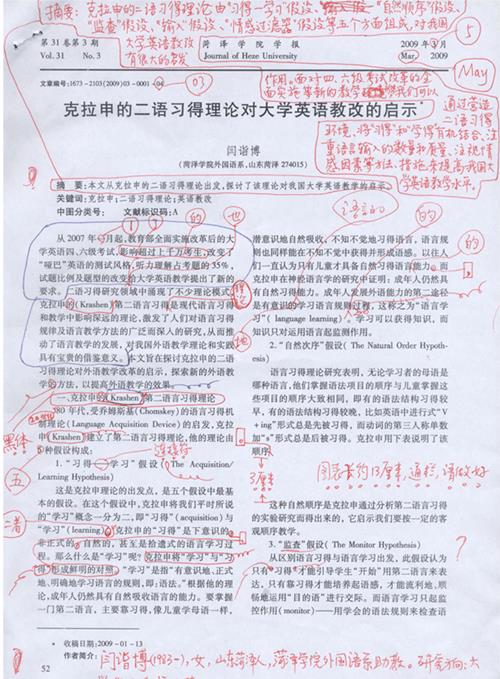 摘要:克拉申的二语习得理论由"习得—学习"假设、"自然顺序"假设、
"监查"假设、"输入"假设、"情感过滤器"假设等五个方面组成,对我国
大学英语教改
有很大的启发
作用。面对四、六级考试改革的全
面实施等新的教学
我们可以
通过营造
二语习得
环境,将习得和学得有机结合,注
重语言输入的数量和质量,注视情
感因素等方法、措施来提高我国大
学英语教学水平。
5
May
03
第31卷第3期
菏泽学院学报
2009年3月
Vol. 31 No. 3
Journal of Heze University
Mar. 2009
文章编号:1673-2103(2009)03-0001-04
克拉申的二语习得理论对大学英语教改的启示*
闫诣博
(菏泽学院外国语系,山东菏泽 274015)
摘 要:本文从克拉申的二语习得理论出发,探讨了该理论对我国大学英语教学的启示。
关键词:克拉申;二语习得;大学英语教改
中图分类号: 文献标识码:A
从2007年
月起,教育部全面实施改革后的大
学英语四、六级考试,影响超过上千万考生,改变了
"哑巴"英语的测试风格,听力理解占考题的35%,
试题比例及题型的改变给大学英语教学提出了新的
要求。二语习得研究领域中涌现了不少理论模式,
克拉申的(Krashen)第二语言习得是现代语言习得
和教学中影响深远的理论,激发了人们对语言习得
规律及语言教学方法的广泛而深入的研究,从而推
动了语言教学的发展,对我国外语教学理论和实践
具有宝贵的借鉴意义。本文旨在探讨克拉申的二语
习得理论对外语教学改革的启示,探索新的外语教
学的方法,以提高外语教学的效果。
一、克拉申(Krashen)第二语言习得理论
80年代,受乔姆斯基(Chomsky)的语言习得机
制理论(Language Acquisition Device)的启发,克拉
申(Krashen)建立了第二语言习得理论,他的理论由
5种假设构成:
1."习得—学习"假设(The Acquisition/
Learning Hypothesis)
这是克拉申理论的出发点,是五个假设中最基
本的假设。在这个假设中,克拉申将我们平时所说
的"学习"概念一分为二,即"习得"(acquisition)与
"学习"(learning)。克拉申的"习得"是下意识的、
非正式的、自然的、甚至是拾遗式的语言学习过
程。那么什么是"学习"呢?克拉申将"学习"与"习
得"形成鲜明的对照。"学习"是指"有意识地、正式
地、明确地学习语言的规则,即:语法。"根据他的理
论,成年人仍然具有自然吸收语言的能力。要掌握
一门第二语言,主要靠习得,像儿童学母语一样,
潜意识地自然吸收,不知不觉地习得语言,语言规
则也同样能在不知不觉中获得并形成语感。以往人
们一直认为只有儿童才具备自然习得语言能力。而
克拉申在神经语言学的研究中证明:成年人仍然具
有自然习得语言能力。成年人发展外语能力的第二途径
是有意识的学习语言规则过程,这称之为"语言学
习"(language learning)。"学习"可以获得知识,而
知识只对运用语言起监测作用。
2."自然次序"假设(The Natural Order Hypoth-
esis)
语言习得理论研究表明,无论学习者的母语是
哪种语言,他们掌握语法项目的顺序与儿童掌握这
些项目的顺序大致相同,即有的语法结构习得较
早,有的语法结构习得较晚,比如英语中进行式"V
+ing"形式总是先被习得,而动词的第三人称单数
加"s"形式总是后被习得。克拉申用下表说明了该
顺序。
3厘米
图表长约13厘米,通栏,请做好
这种自然顺序是克拉申通过分析第二语言习得
的实验研究而得出来的,它启示我们要按一定的客
观顺序教学。
3."监查"假设(The Monitor Hypothesis)
从区别语言习得与语言学习出发,此假设认为
只有"习得"才能引导学生"开始"用第二语言来表
达,只有靠习得才能培养起语感,才能流利地、顺
畅地运用"目的语"进行交际。而语言学习只起监
控作用(monitor)——用学会的语法规则来检查语
的
也
的
的
地
黑体
五
连接符
二者
* 收稿日期:2009-01-13
作者简介:闫诣博(1983-),女,山东菏泽人,菏泽学院外国语系助教。研究方向:大
52